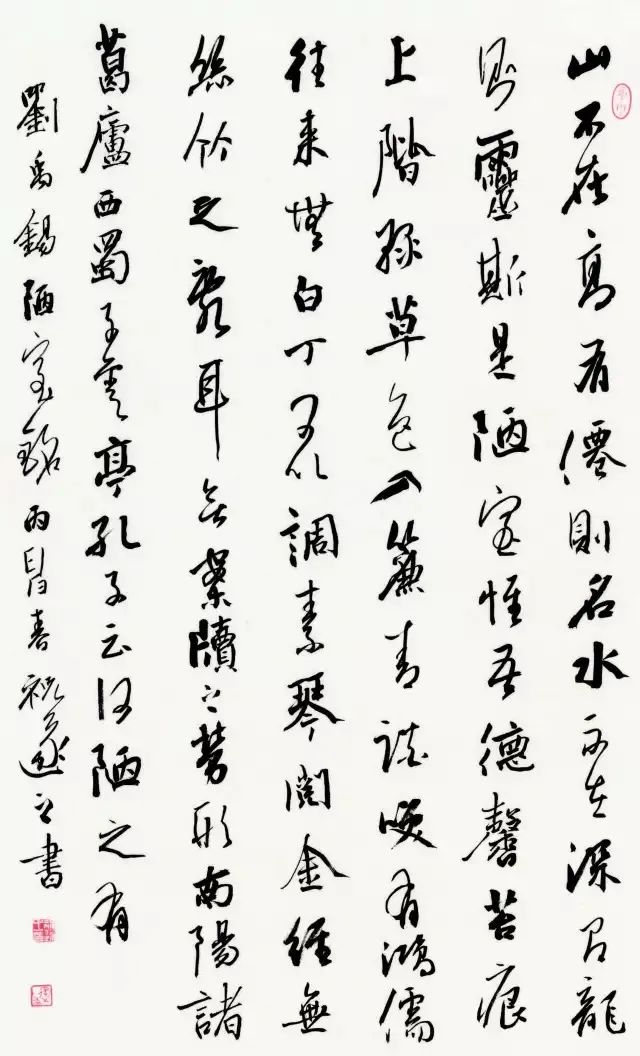 山不在高有僊則名水不在深有龍
則靈斯是陋室惟吾德馨苔痕
上階綠草色入簾青談咲有鴻儒
往来無白丁可以調素琴閱金經無
絲竹之亂耳無案牘之勞形南陽諸
葛廬西蜀子雲亭孔子云何陋之有
劉禹錫陋室銘丙申春祝遂之書